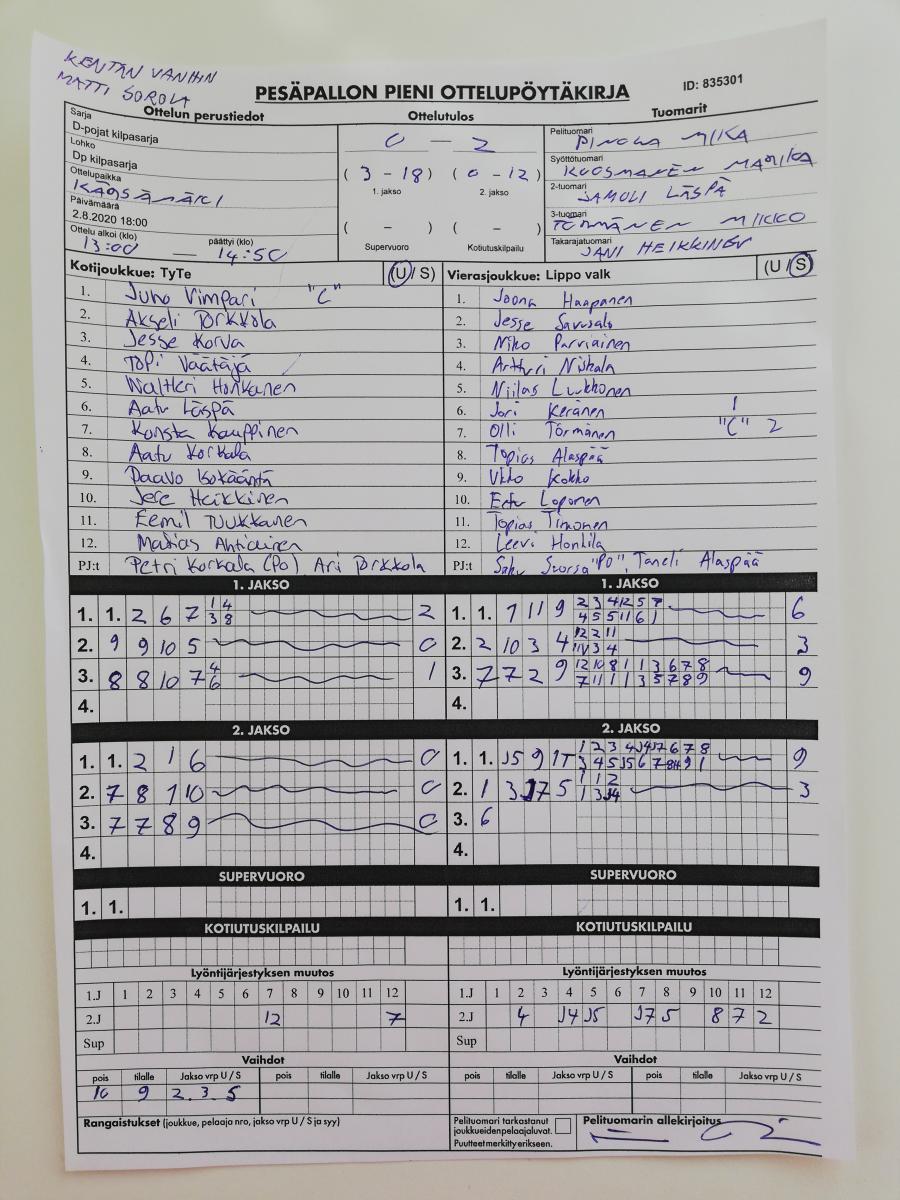 KENTÄN VANHIN
MATTI SOROLA
PESÄPALLON PIENI OTTELUPÖYTÄKIRJA
ID: 835301
Ottelun perustiedot
Ottelutulos
Tuomarit
Sarja
D-pojat kilpasarja
Lohko
Dp kilpasarja
Ottelupaikka
KÄRSÄMÄKI
Päivämäärä
2.8.2020 18:00
Ottelu alkoi (klo) päättyi (klo)
13:00 — 14:50
0 — 2
( 3 - 18 ) ( 0 - 12 )
1. jakso 2. jakso
( - ) ( - )
Supervuoro Kotiutuskilpailu
Pelituomari
PINOLA MIKA
Syöttötuomari
KOOSMANEN MARIKA
2-tuomari
SAMULI LÄSPÄ
3-tuomari
TÖRMÄNEN MIKKO
Takarajatuomari
JANI HEIKKINEN
Kotijoukkue: TyTe (U / S)
1. Juho Vimpari "C"
2. Akseli Porkkola
3. Jesse Korva
4. Topi Väätäjä
5. Waltteri Honkanen
6. Aatu Läspä
7. Konsta Kauppinen
8. Aatu Korkala
9. Paavo Isokääntä
10. Jere Heikkinen
11. Eemil Tuukkanen
12. Matias Ahtiainen
PJ:t Petri Korkala (PO) Ari Porkkola
Vierasjoukkue: Lippo valk (U / S)
1. Joona Haapanen
2. Jesse Savusalo
3. Niko Parviainen
4. Artturi Niskala
5. Niilas Luukkonen
6. Jori Keränen 1
7. Olli Törmänen "C" 2
8. Topias Alaspää
9. Ukko Kokko
10. Eetu Loponen
11. Topias Timonen
12. Leevi Honkila
PJ:t Saku Suorsa "PO", Taneli Alaspää
1. JAKSO
1. 1. 2 6 7 1 4 2
3 8
2. 9 9 10 5 0
3. 8 8 10 7 4 1
6
4.
1. JAKSO
1. 1. 7 11 9 2 3 4 12 5 7 6
4 5 5 11 6 1
2. 2 10 3 4 12 2 11 3
11 3 4
3. 7 7 2 9 12 10 8 1 1 3 6 7 8 9
7 11 1 1 3 5 7 8 9
4.
2. JAKSO
1. 1. 2 1 6 0
2. 7 8 1 10 0
3. 7 7 8 9 0
4.
2. JAKSO
1. 1. J5 9 1 1 2 3 4 J4 J7 6 7 8 9
3 4 5 J5 6 7 8 9 1
2. 1 3 J7 5 1 1 2 3
1 3 J4
3. 6
4.
SUPERVUORO
1. 1.
SUPERVUORO
1. 1.
KOTIUTUSKILPAILU
KOTIUTUSKILPAILU
Lyöntijärjestyksen muutos
1.J 1 2 3 4 5 6 7 8 9 10 11 12
2.J 12 7
Sup
Lyöntijärjestyksen muutos
1.J 1 2 3 4 5 6 7 8 9 10 11 12
2.J 4 J4 J5 J7 5 8 7 2
Sup
Vaihdot
pois tilalle Jakso vrp U / S pois tilalle Jakso vrp U / S
10 9 2. 3. S
Vaihdot
pois tilalle Jakso vrp U / S pois tilalle Jakso vrp U / S
Rangaistukset (joukkue, pelaaja nro, jakso vrp U / S ja syy)
Pelituomari tarkastanut
joukkueidenpelaajaluvat.
Puutteet merkitty erikseen.
Pelituomarin allekirjoitus